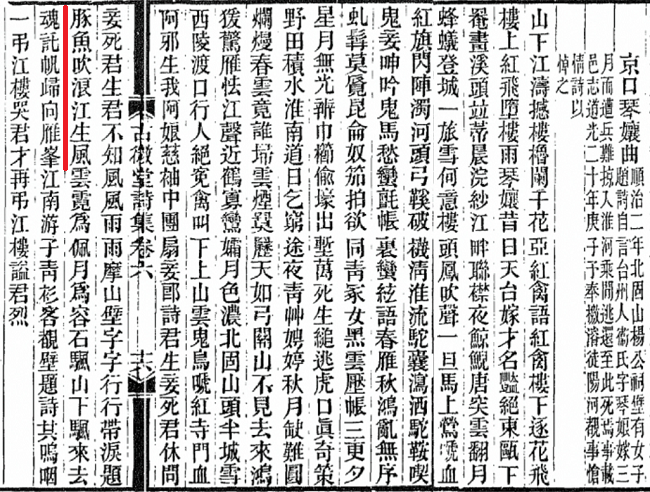 京口琴孃曲
順治二年北固山楊公祠壁有女子
題詩自言台州人衞氏字琴孃嫁三
月而遭兵難掠入淮河乘間逃還至此死焉事載
邑志道光二十年庚子奉檄溶徒陽河覩事愴
情詩以
悼之
山下江濤撼樓櫓闌千花亞紅禽語紅禽樓下逐花飛
樓上紅飛墮樓雨琴孃昔日天台嫁才名豔絕東甌下
罨畫溪頭竝蒂晨浣紗江畔聯襟夜鯨鯢唐突雲翻月
蜂蟻登城一旅雪何意樓頭鳳吹聲一旦馬上鶯嗁血
紅旗閃陣濁河頭弓鞵破襪淸淮流駝囊瀉酒駝鞍喫
鬼妾呻吟鬼馬愁蠻氈帳裏蠻絃語春雁秋鴻亂無序
虬髯莫覓崑侖奴笳拍欲同靑冢女黑雲壓帳三更夕
星月無光巾櫛偸壕出塹萬死生縋逃虎口眞奇策
野田積水淮南道日乞窮途夜靑艸娉婷秋月難圓
爛熳春雲竟誰埽雲煙歷天如弓關山不見去來鴻
猨驚雁怯江聲近鶴寡鸞孀月色濃北固山頭半城雪
西陵渡口行人絕寃禽叫下上山雲鬼鳥嗁紅寺門血
阿邪生我阿娘慈袖中團扇妾郞詩君生妾死君休問
古微堂詩集卷六
妾死君生君不知風風雨雨摩山壁字字行行帶淚題
豚魚吹浪江生風雲霓爲佩月爲容石飄山下飄來去
魂託帆歸向雁峯江南游子靑衫客覩壁題詩其嗚咽
一弔江樓哭君才再弔江樓謚君烈